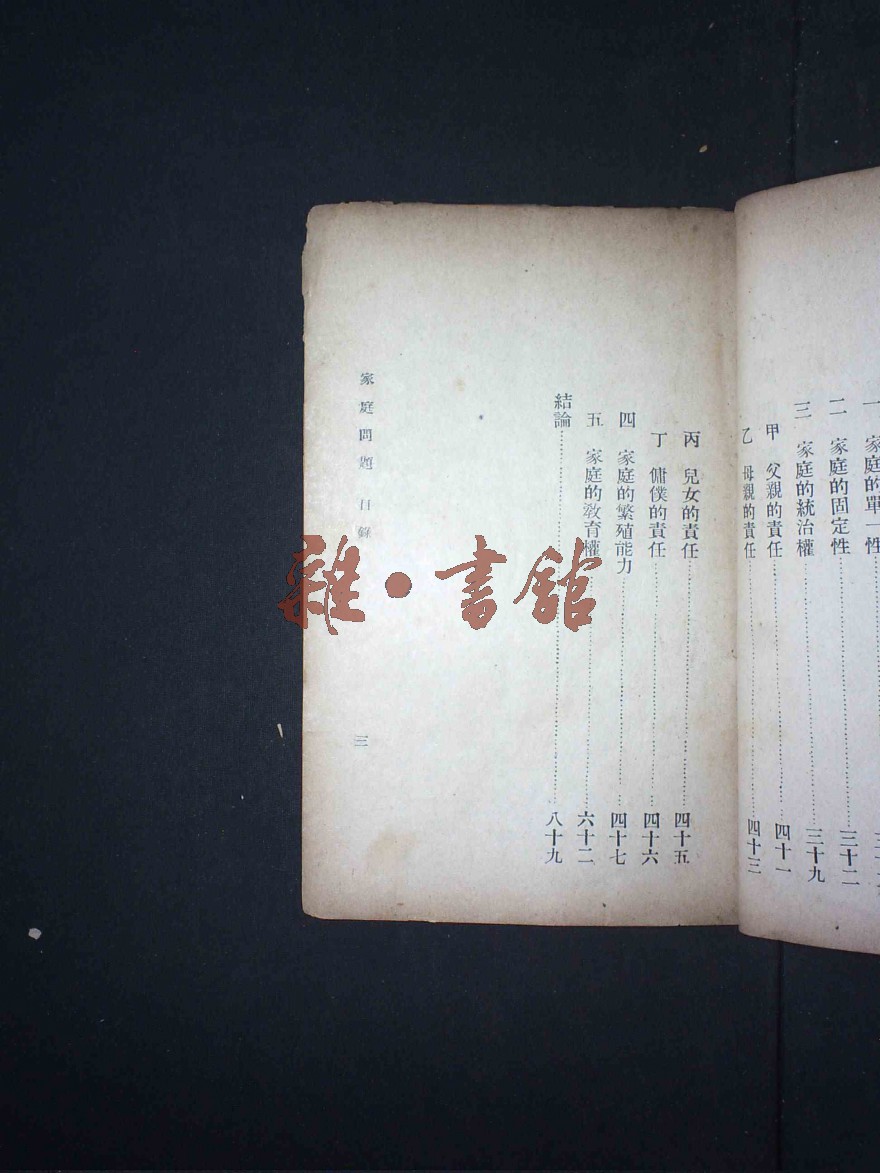 一 家庭的單一性
二 家庭的固定性……三十二
三 家庭的統治權……三十九
甲 父親的責任……四十一
乙 母親的責任……四十三
丙 兒女的責任……四十五
丁 傭僕的責任……四十六
四 家庭的繁殖能力……四十七
五 家庭的教育權……六十二
結論……八十九
家庭問題 目錄
三
雜·書館